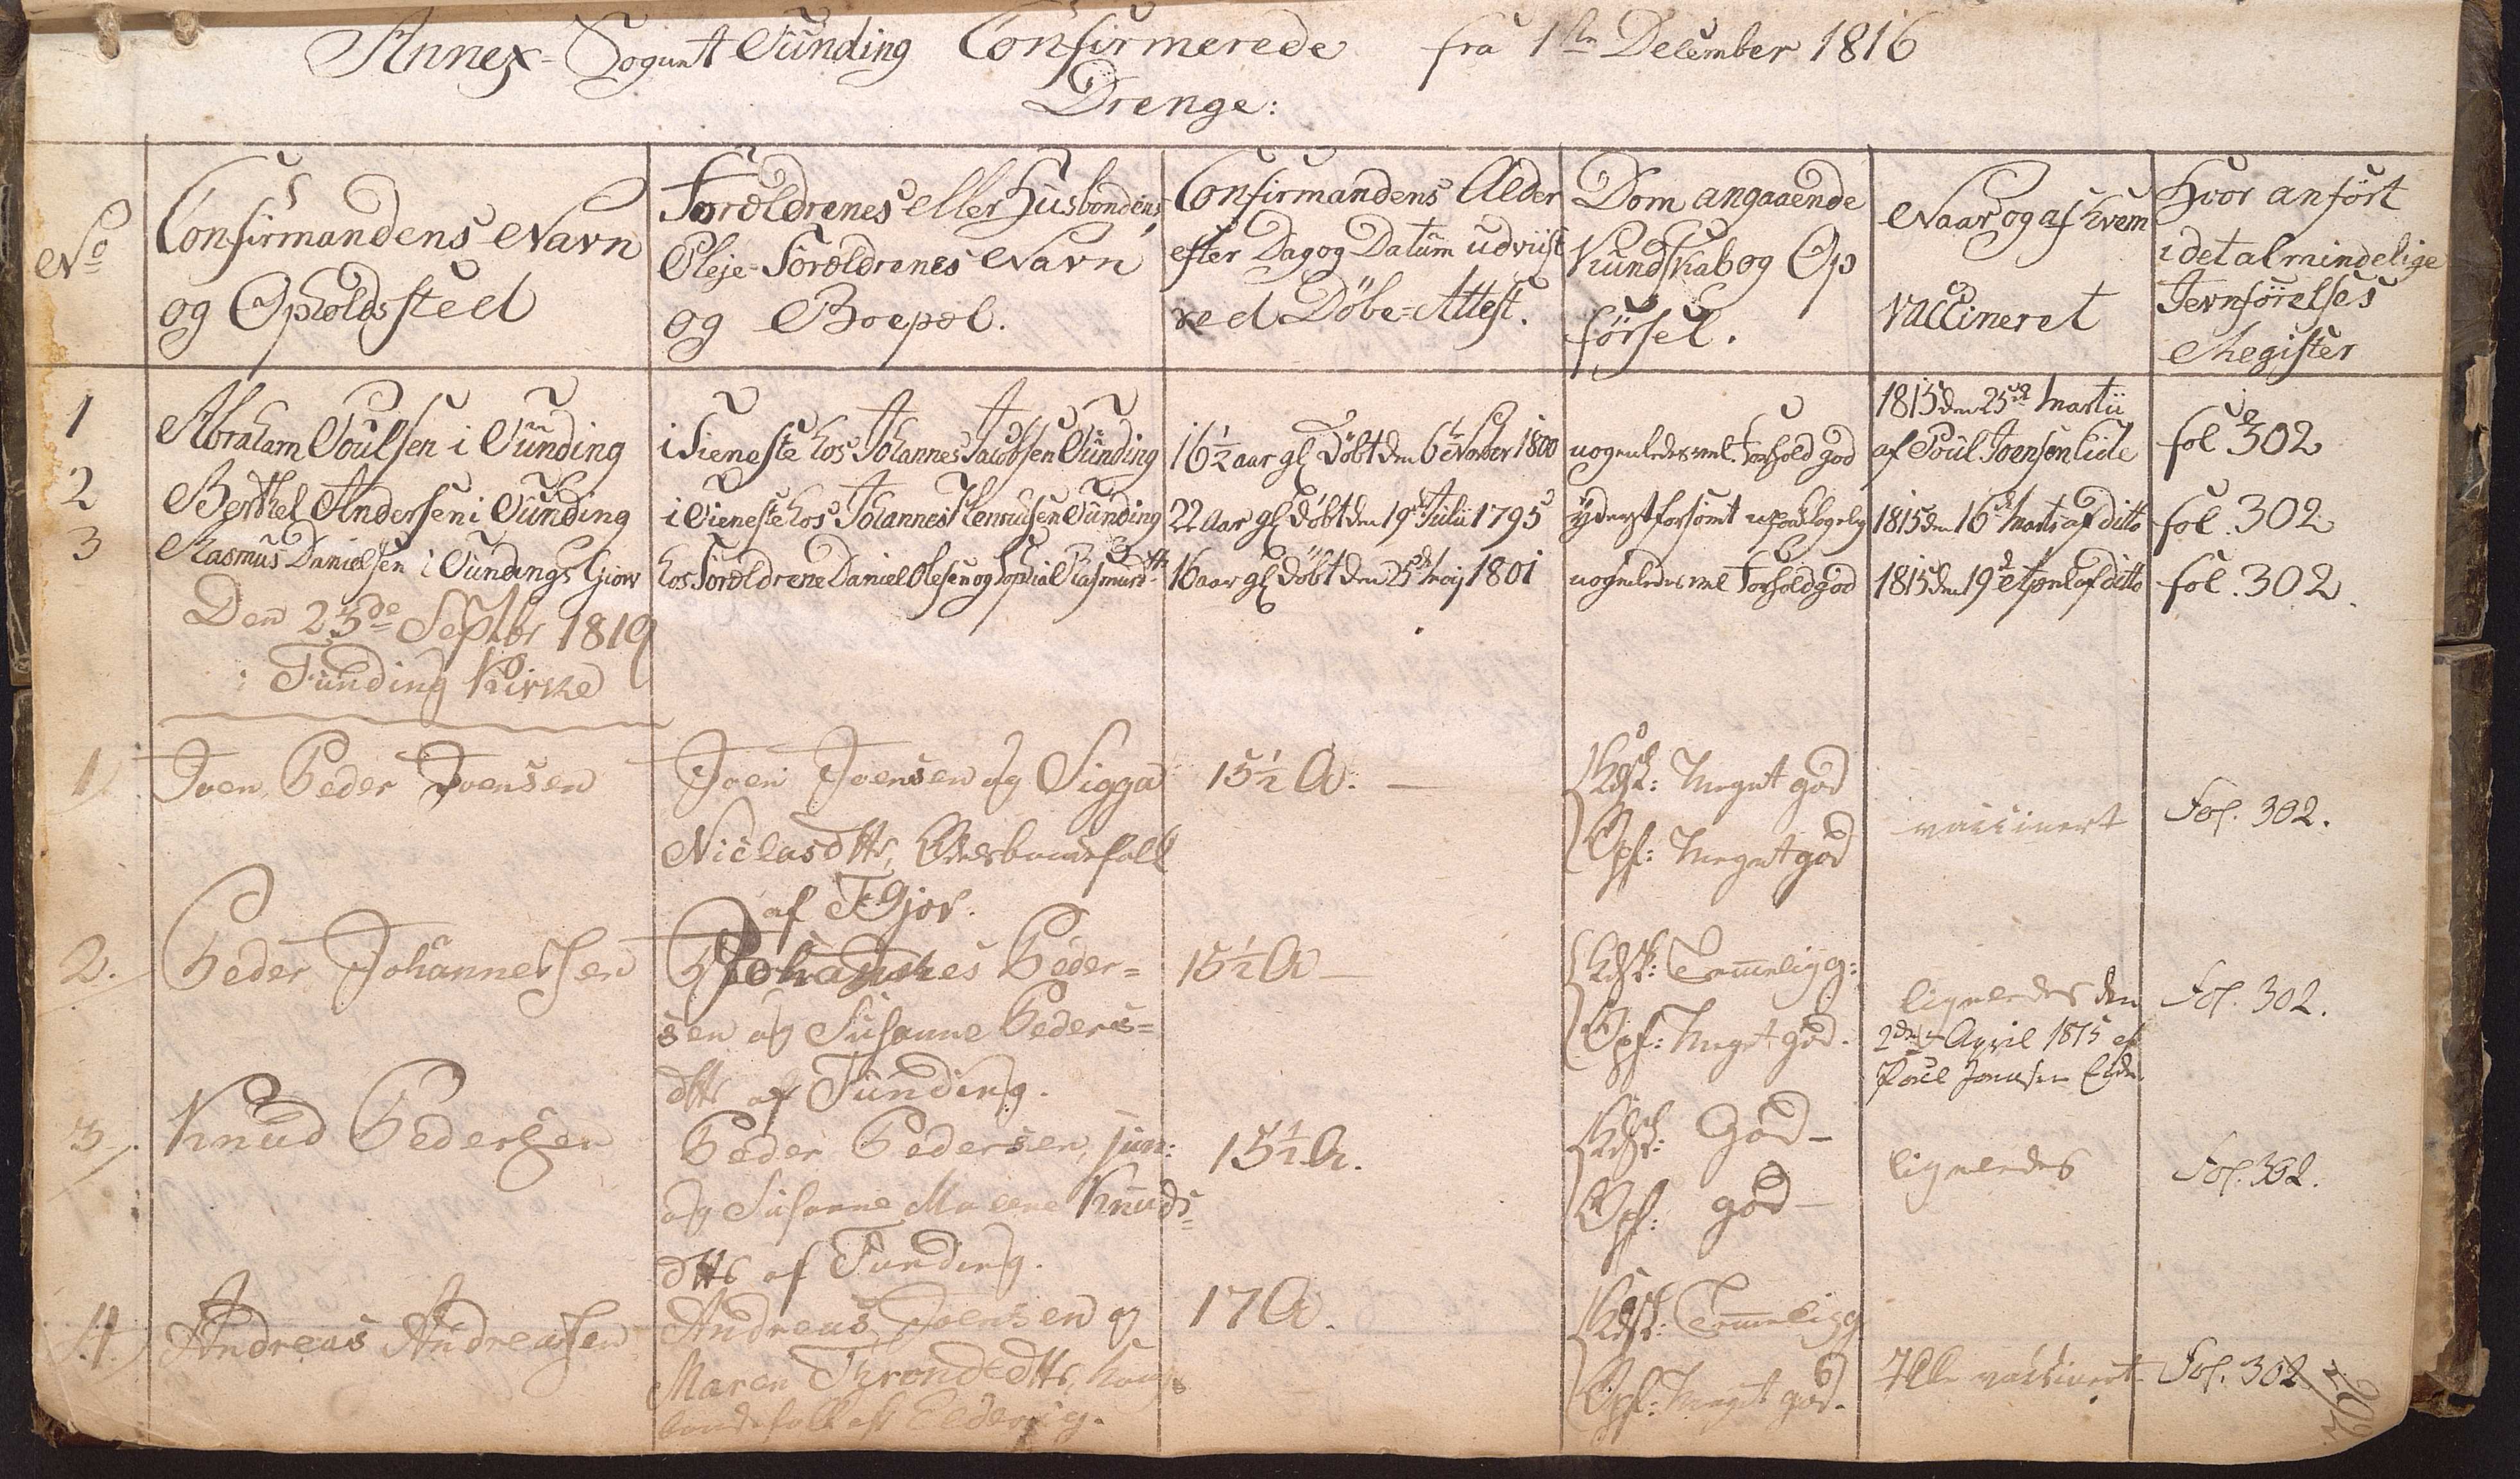 Annex-Sognet Funding Confirmerede fra 1ste December 1816
Drenge:
No
Confirmandens Navn
og Opholdssteed
Forældrenes eller Husbondens,
Pleje-Forældrenes Navn
og Boepæl.
Confirmandens Alder
efter Dag og Datum udviist
ved Döbe-Attest.
Dom angaaende
Kundskab og Op
førsel.
Naar og af hvem
vaccineret
Hvor anført
i det almindelige
Jevnførelses
Register
1 Abraham Poulsen i Funding
i Tieneste hos Johannes Jacobsen Funding
16½ aar gl døbt den 6te Novber 1800
nogenledes vel. Forhold god
1815 den 25de Martii
af Poul Joensen Eide
fol. 302
2 Berthel Andersen i Funding
i Tieneste hos Johannes Henrichsen Funding
22 Aar gl døbt den 19de Julii 1795
yderst forsömt
1815 den 16de Marts af ditto
fol. 302
3 Rasmus Danielsen i Fundings Giow
hos Forældrene Daniel Olesen og Sophia Rasmusdtr
16 aar gl døbt den 25de Maij 1801
nogenledes vel Forhold god
1815 den 19de April af ditto
fol. 302.
Den 23de Septbr 1819
i Funding Kirke
1. Joen Peder Joensen
Joen Joensen og Sigga
Niclasdttr, Odelsbondefolk
af F Gjov.
15½ A. —
Kdsk: Meget god
Opf: Meget god
vaccinert
Fol. 302.
2. Peder Johannessen
Johannes Peder=
sen og Susanne Peders=
dttr af Funding.
15½ A —
Kdsk: Temmelig g:
Opf: Meget god.
ligeledes den
2den April 1815 af
Poul Joensen Eide.
Fol. 302.
3. Knud Pedersen
Peder Pedersen, jun:
og Susanne Malene Knuds=
dttr af Funding.
15½ A.
Kdsk: God —
Opf: god —
ligeledes
Fol. 302.
4. Andreas Andreasen
Andreas Joensen og
Maren Throndedttr, Kongs
bondefolk af Eldevig.
17 A.
Kdsk: Temmelig g
Opf: Meget god.
vaccinert
Fol. 302